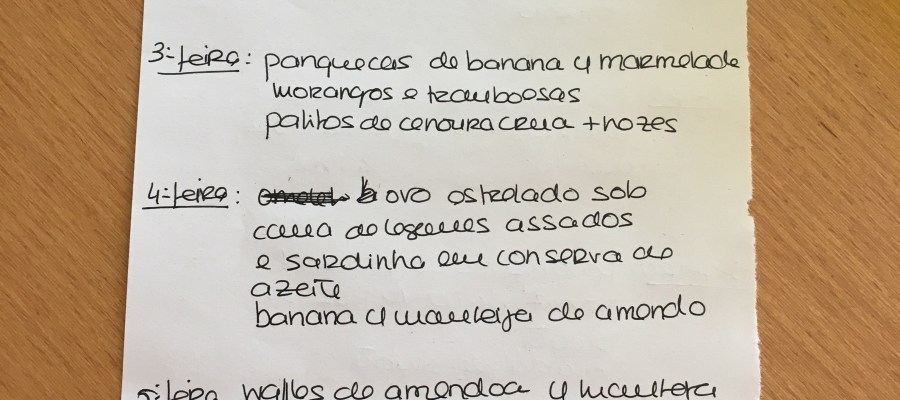 3ª-feira: panquecas de banana c/ marmelade
morangos e framboesas
palitos de cenoura crua + nozes
4ª-feira: ovo estrelado sob
cama de legumes assados
e sardinha em conserva de
azeite
banana c/ manteiga de amendo
feira waffles de amendoa c/ manteiga